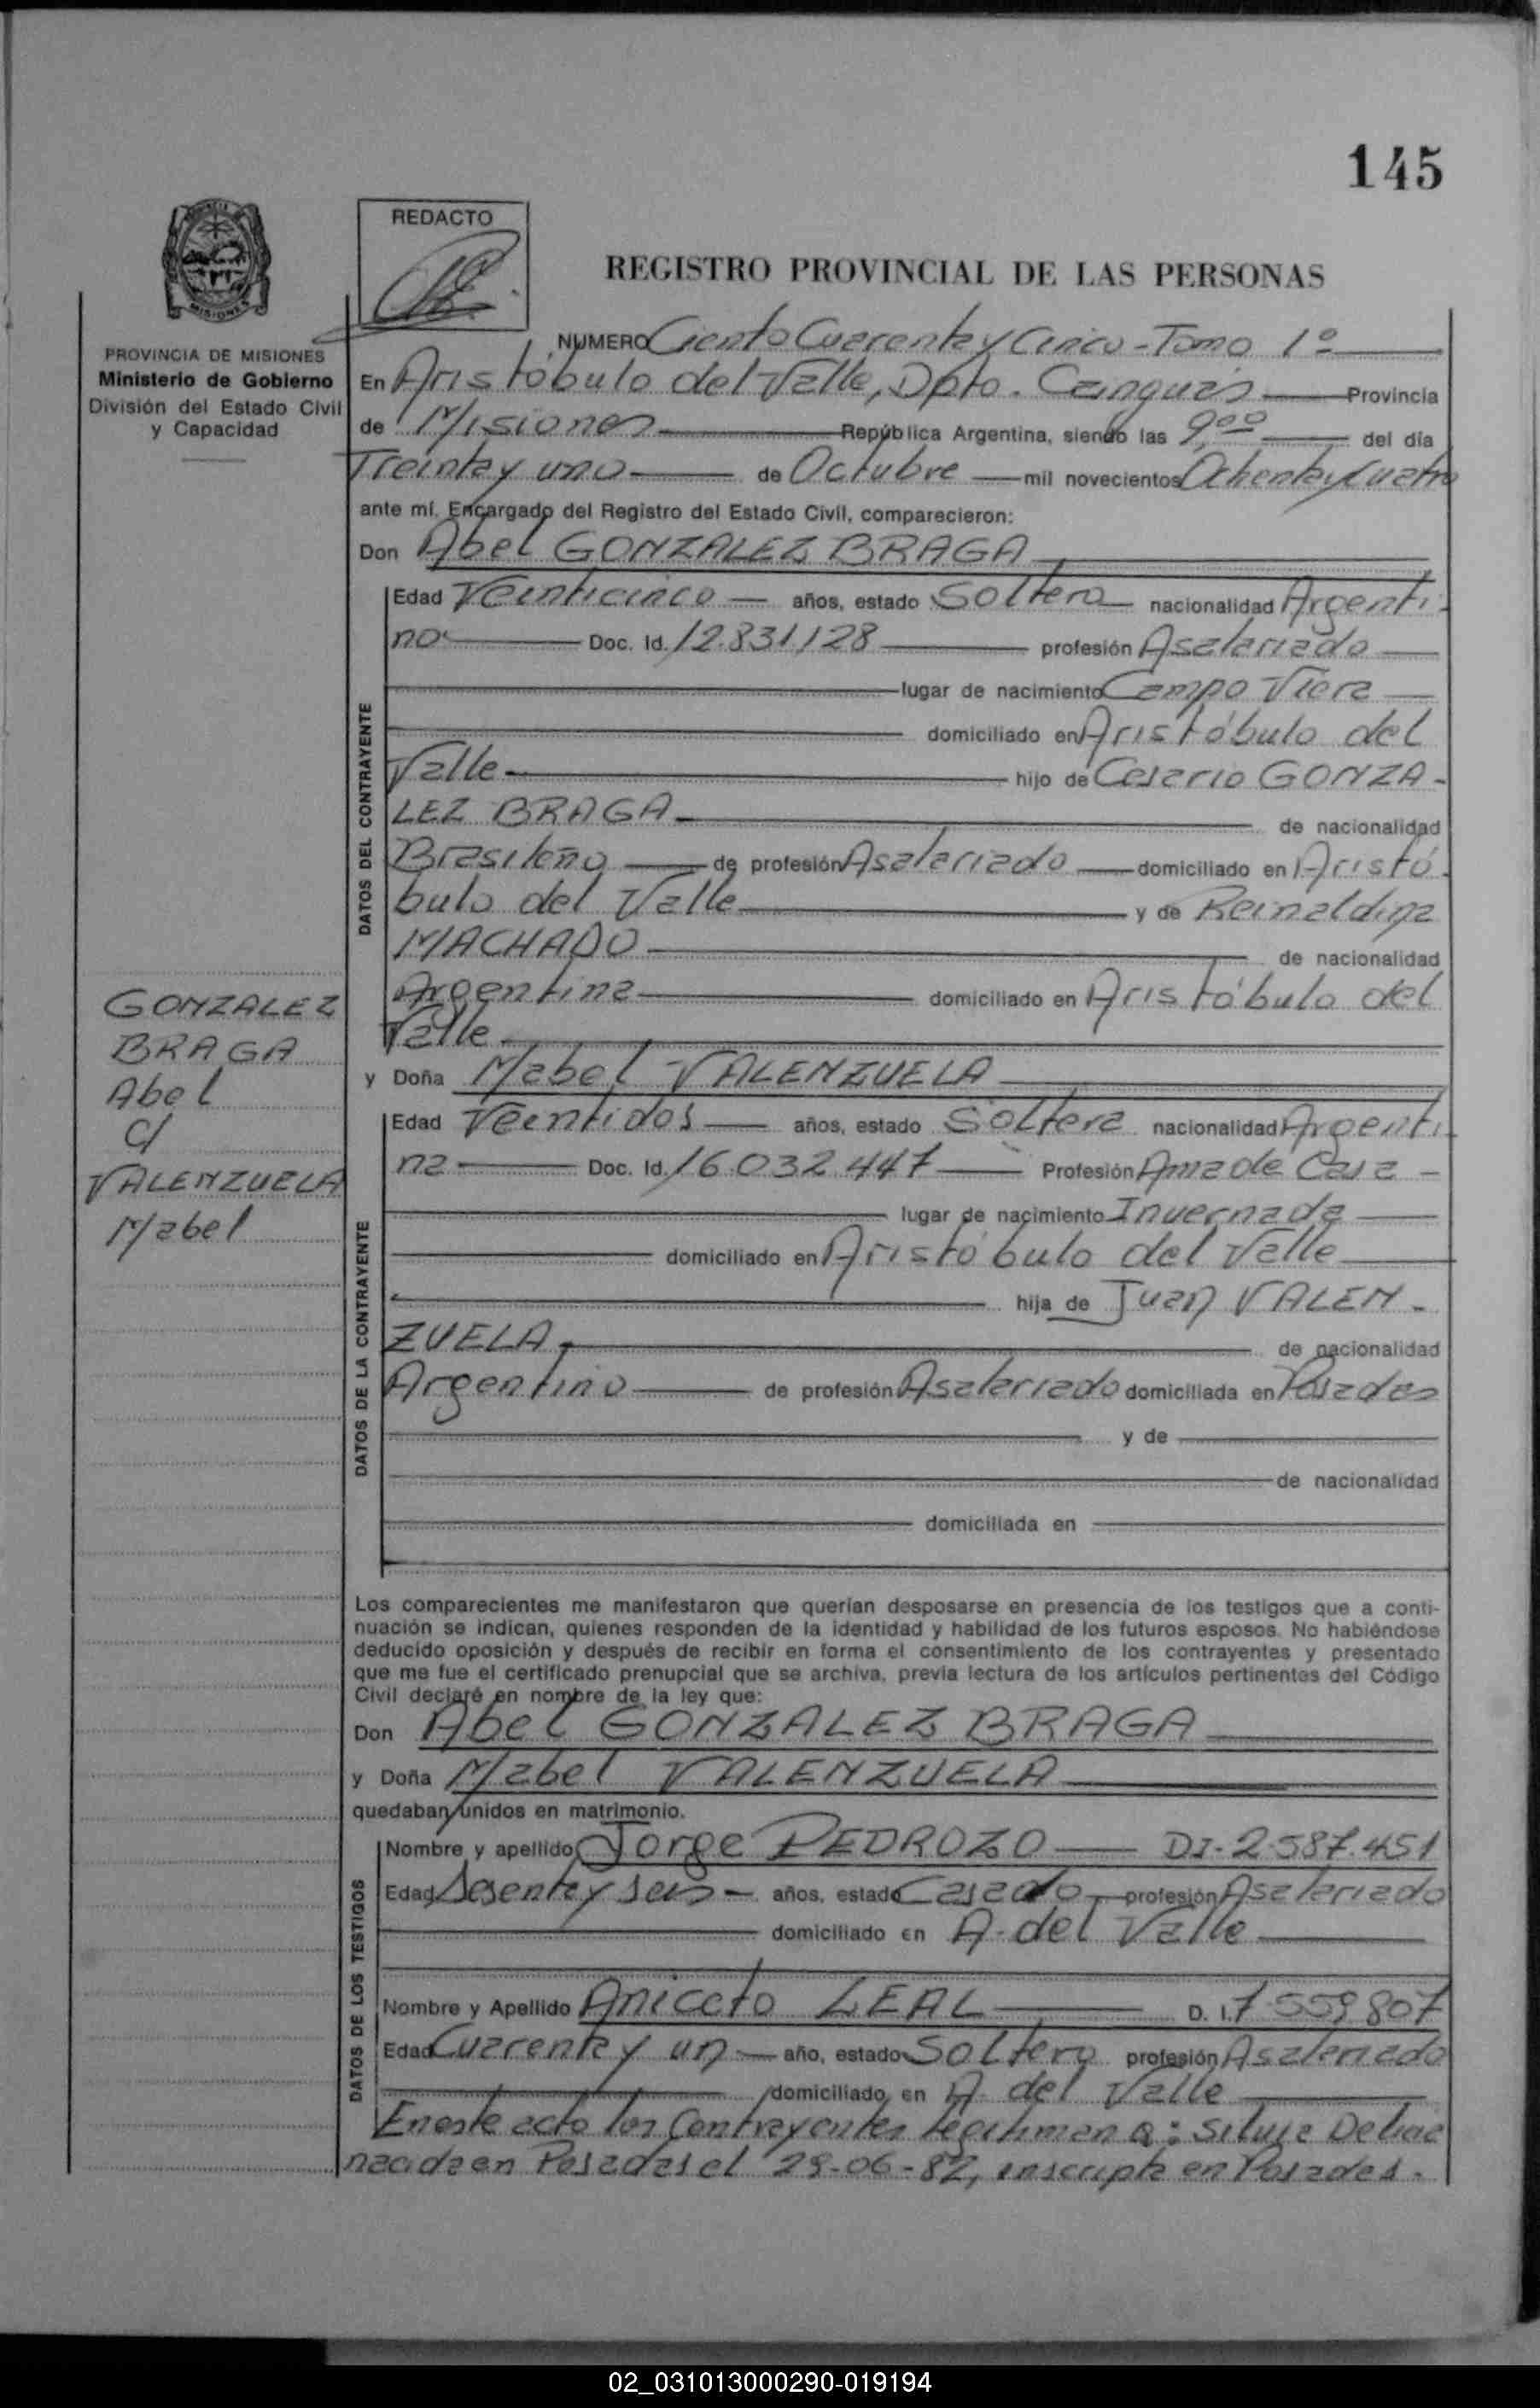 145
REDACTO
REGISTRO PROVINCIAL DE LAS PERSONAS
MISIONES
PROVINCIA DE MISIONES
Ministerio de Gobierno
División del Estado Civil
y Capacidad
NUMERO Ciento Cuarenta y Cinco - Tomo 1º
En Aristóbulo del Valle, Dpto. Cainguás Provincia
de Misiones República Argentina, siendo las 9,00 del día
Treinta y uno de Octubre mil novecientos Ochenta y Cuatro
ante mí, Encargado del Registro del Estado Civil, comparecieron:
Don Abel GONZALEZ BRAGA
DATOS DEL CONTRAYENTE
Edad Veinticinco años, estado Soltero nacionalidad Argenti-
no Doc. Id. 12.831.128 profesión Asalariado
lugar de nacimiento Campo Viera
domiciliado en Aristóbulo del
Valle hijo de Cesario GONZA-
LEZ BRAGA de nacionalidad
Brasileño de profesión Asalariado domiciliado en Aristó-
bulo del Valle y de Reinaldina
MACHADO de nacionalidad
Argentina domiciliado en Aristóbulo del
Valle
GONZALEZ
BRAGA
Abel
c/
VALENZUELA
Mabel
y Doña Mabel VALENZUELA
DATOS DE LA CONTRAYENTE
Edad Veintidos años, estado Soltera nacionalidad Argenti-
na Doc. Id. 16.032.447 Profesión Ama de Casa
lugar de nacimiento Invernada
domiciliado en Aristóbulo del Valle
hija de Juan VALEN-
ZUELA de nacionalidad
Argentino de profesión Asalariado domiciliada en Posadas
y de
de nacionalidad
domiciliada en
Los comparecientes me manifestaron que querían desposarse en presencia de los testigos que a conti-
nuación se indican, quienes responden de la identidad y habilidad de los futuros esposos. No habiéndose
deducido oposición y después de recibir en forma el consentimiento de los contrayentes y presentado
que me fue el certificado prenupcial que se archiva, previa lectura de los artículos pertinentes del Código
Civil declaré en nombre de la ley que:
Don Abel GONZALEZ BRAGA
y Doña Mabel VALENZUELA
quedaban unidos en matrimonio.
DATOS DE LOS TESTIGOS
Nombre y apellido Jorge PEDROZO DI- 2.587.451
Edad Sesenta y seis años, estado Casado profesión Asalariado
domiciliado en A. del Valle
Nombre y Apellido Aniceto LEAL D. I. 7.559.807
Edad Cuarenta y un año, estado Soltero profesión Asalariado
domiciliado en A. del Valle
En este acto los Contrayentes legitiman a: Silvia
nacida en Posadas el 29-06-82, inscripta en Posadas.
02_031013000290-019194